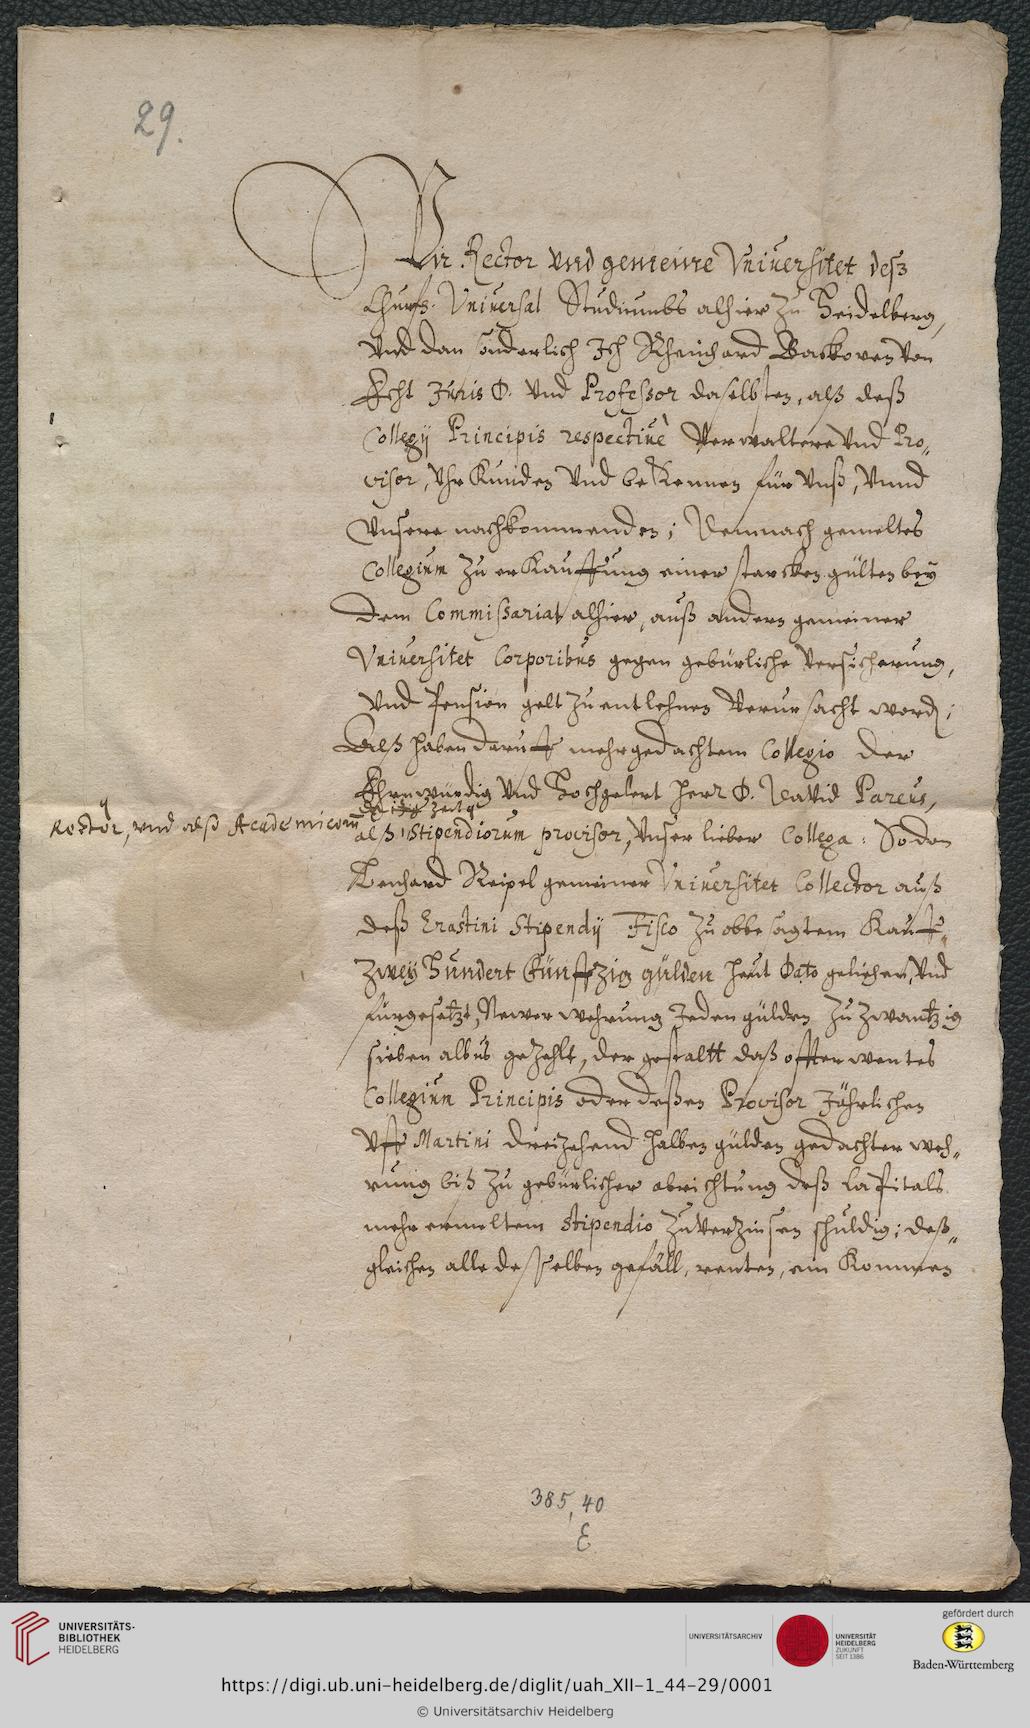 29.
Wir Rector vnd gemeine Vniuersitet deß
Churfs. Vniuersal Studiumbs alhier zu Heidelberg,
Vnd dan sonderlich Ich Rheinhard Backoven von
Echt Juris D. vnd Professor daselbsten, alß deß
Collegij Principis respectiuè Verwaltere vnd Pro„
visor, Vhrkunden vnd bekennen für vnß, vnnd
vnsere nachkommenden; Demnach gemeltes
Collegium zu erkauffung einer starcken gülten bey
dem Commissariat alhier, auß andern gemeiner
Vniuersitet Corporibus gegen gebürliche versicherung,
vnd Pension gelt zu entlehnen verursacht word;
Alß haben daruff mehrgedachtem Collegio der
Ehrnwürdig vnd Hochgelert Herr D. David Pareus,
Rector, vnd alß Academicorum
alß Stipendiorum provisor, vnser lieber Collega: So dan
Lenhard Reipel gemeiner Vniuersitet Collector auß
deß Erastini Stipendij Fisco zu obbesagtem Kauff„
Zwey Hundert Fünffzig gülden heut Dato geliehen, vnd
fürgesetzt, Newer wehrung Jeden gülden zu zwantzig
sieben albus gezehlt, der gestaltt daß offterwentes
Collegium Principis oder deßen Provisor Jährlichen
vff Martini dreizehend halben gülden gedachter weh„
rung biß zu gebürlicher abrichtung deß Capitals
mehr ermeltem Stipendio zuverzinsen schuldig; deß„
gleichen alle desselben gefäll, renten, ein Kommen
385, 40
E
UNIVERSITÄTS-
BIBLIOTHEK
HEIDELBERG
UNIVERSITÄTSARCHIV
UNIVERSITÄT
HEIDELBERG
ZUKUNFT
SEIT 1386
gefördert durch
Baden-Württemberg
https://digi.ub.uni-heidelberg.de/diglit/uah_XII-1_44-29/0001
© Universitätsarchiv Heidelberg